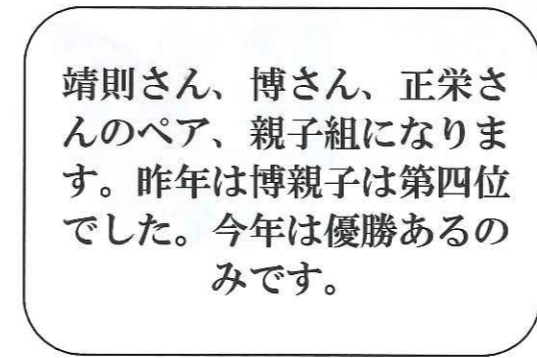 靖則さん、博さん、正栄さ
んのペア、親子組になりま
す。昨年は博親子は第四位
でした。今年は優勝あるの
みです。